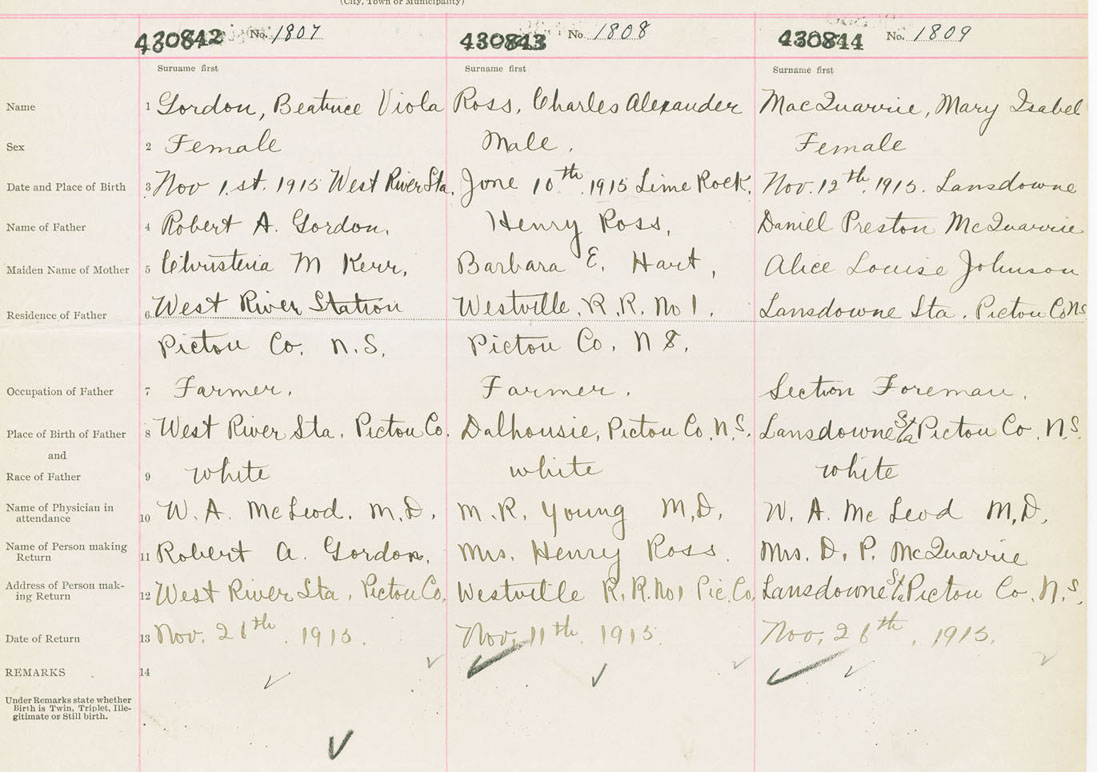 (City, Town or Municipality)
430842 No. 1807 430843 No 1808 430844 No. 1809
Surname first Surname first Surname first
Name 1 Gordon, Beatrice Viola Ross, Charles Alexander MacQuarrie, Mary Isabel
Sex 2 Female Male. Female
Date and Place of Birth 3 Nov 1st. 1915 West River Sta. June 10th 1915 Lime Rock. Nov. 12th, 1915. Lansdowne
Name of Father 4 Robert A. Gordon, Henry Ross, Daniel Preston McQuarrie
Maiden Name of Mother 5 Christena M Kerr, Barbara E. Hart, Alice Louise Johnson
Residence of Father 6 West River Station Westville, R.R. No 1. Lansdowne Sta. Pictou Co NS
Pictou Co. N.S. Pictou Co. N S.
Occupation of Father 7 Farmer. Farmer. Section Foreman.
Place of Birth of Father 8 West River Sta. Pictou Co. Dalhousie, Pictou Co. N.S. Lansdowne Sta Pictou Co. N.S.
and
Race of Father 9 white white white
Name of Physician in attendance 10 W. A. McLeod. M.D. M.R. Young M.D. W. A. McLeod M.D.
Name of Person making Return 11 Robert A. Gordon. Mrs. Henry Ross. Mrs. D. P. McQuarrie
Address of Person making Return 12 West River Sta, Pictou Co. Westville R.R. No 1 Pic. Co. Lansdowne Sta Pictou Co. N.S.
Date of Return 13 Nov. 26th. 1915. Nov. 11th. 1915. Nov. 26th, 1915.
REMARKS 14
Under Remarks state whether
Birth is Twin, Triplet, Ille-
gitimate or Still birth.